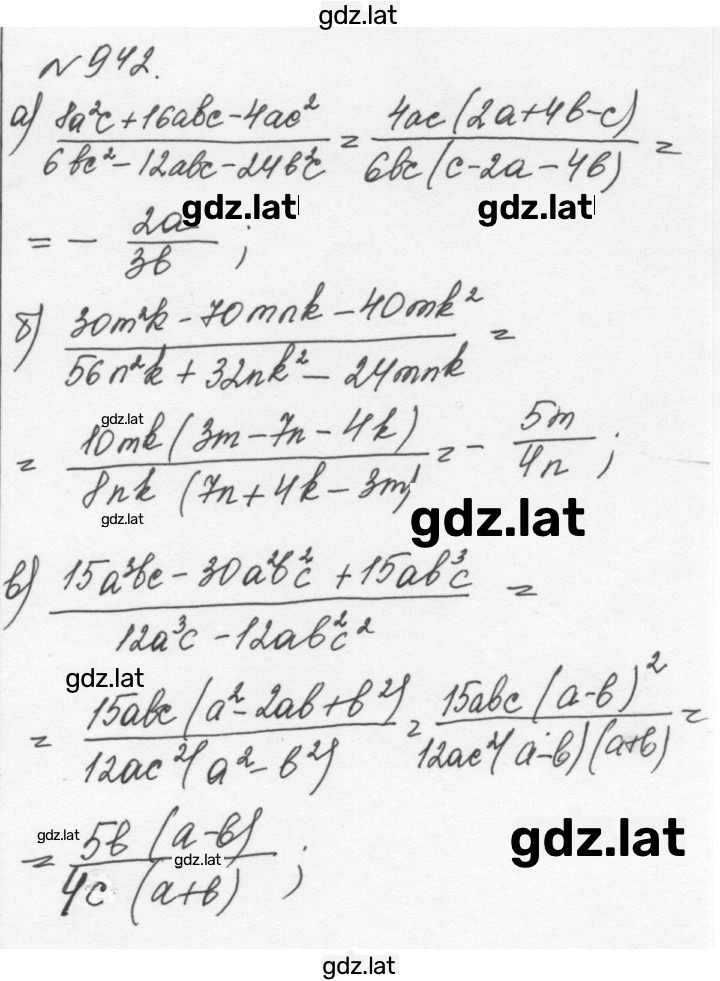 gdz.lat
№942.
а) (8a²c+16abc-4ac²)/(6bc²-12abc-24b²c) = (4ac(2a+4b-c))/(6bc(c-2a-4b)) =
gdz.lat gdz.lat
= - 2a/3b ;
б) (30m²k-70mnk-40mk²)/(56n²k+32nk²-24mnk) =
gdz.lat
= (10mk(3m-7n-4k))/(8nk(7n+4k-3m)) = - 5m/4n ;
gdz.lat
gdz.lat
в) (15a³bc-30a²b²c+15ab³c)/(12a³c-12ab²c²) =
gdz.lat
= (15abc(a²-2ab+b²))/(12ac²(a²-b²)) = (15abc(a-b)²)/(12ac²(a-b)(a+b)) =
gdz.lat
gdz.lat
= (5b(a-b))/(4c(a+b)) ;
gdz.lat
gdz.lat